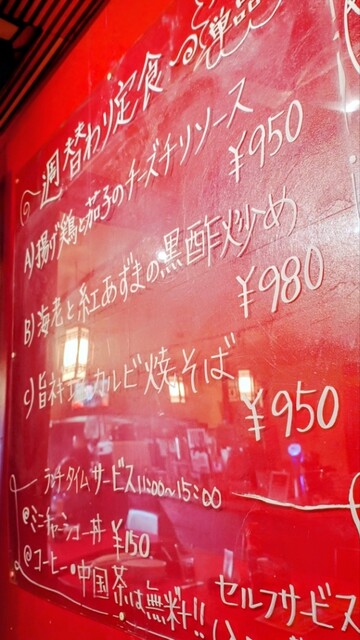 週替わり定食
単品
A)揚げ鶏と茄子のチーズチリソース
¥950
B)海老と紅あずまの黒酢炒め
¥980
C)旨キムチカルビ焼そば
¥950
ランチタイムサービス11:00~15:00
@ミニチャーシュー丼 ¥150
@コーヒー・中国茶は無料!!
セルフサービス